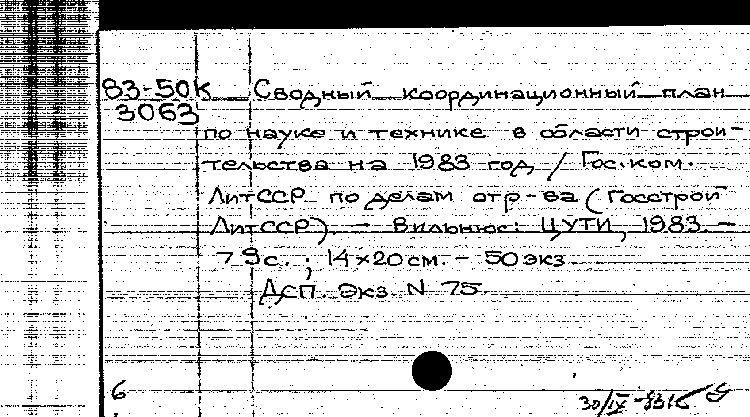 83-50К Сводный координационный план
3063
по науке и технике в области строи-
тельства на 1983 год / Гос.ком.
ЛитССР по делам стр-ва (Госстрой
ЛитССР). - Вильнюс: ЦУТИ, 1983. -
79с. ; 14×20см. - 50экз
Дсп. Экз. N 75.
6
30/IV-83